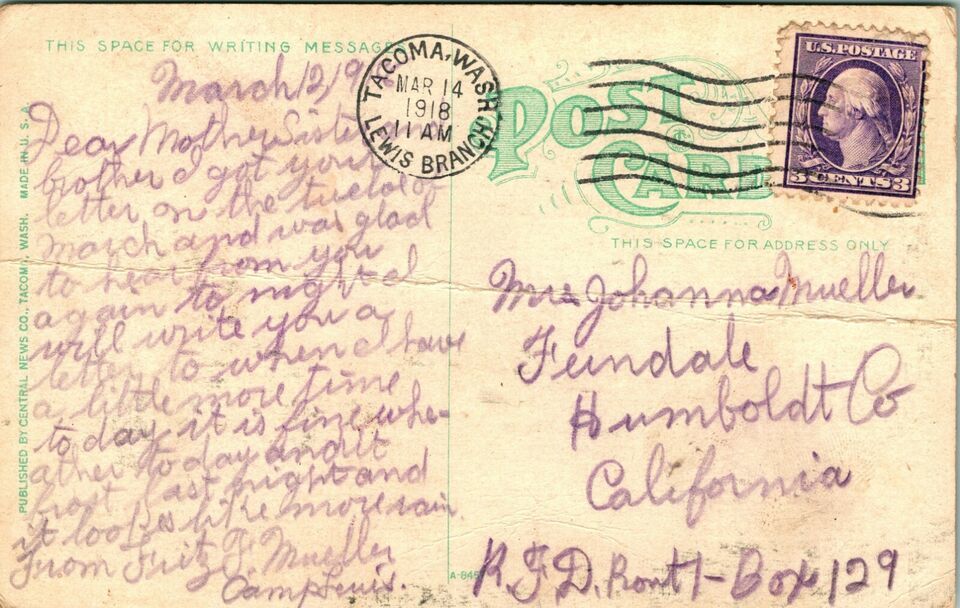 THIS SPACE FOR WRITING MESSAGES
March 12 19
Dear Mother Sister
brother I got your
letter on the twelve of
march and was glad
to hear from you
again to night I
will write you a
letter to when I have
a little more time
to day it is fine whe-
ather to day and it
frost last night and
it lookes like more rain
From Fritz F. Mueller
Camp Lewis.
PUBLISHED BY CENTRAL NEWS CO., TACOMA, WASH. MADE IN U. S. A.
TACOMA, WASH.
MAR 14
1918
11 AM
LEWIS BRANCH
POST
CARD
U.S. POSTAGE
3 CENTS 3
THIS SPACE FOR ADDRESS ONLY
Mrs Johanna Mueller
Ferndale
Humboldt Co
California
R.F.D. Rout 1 - Box 129